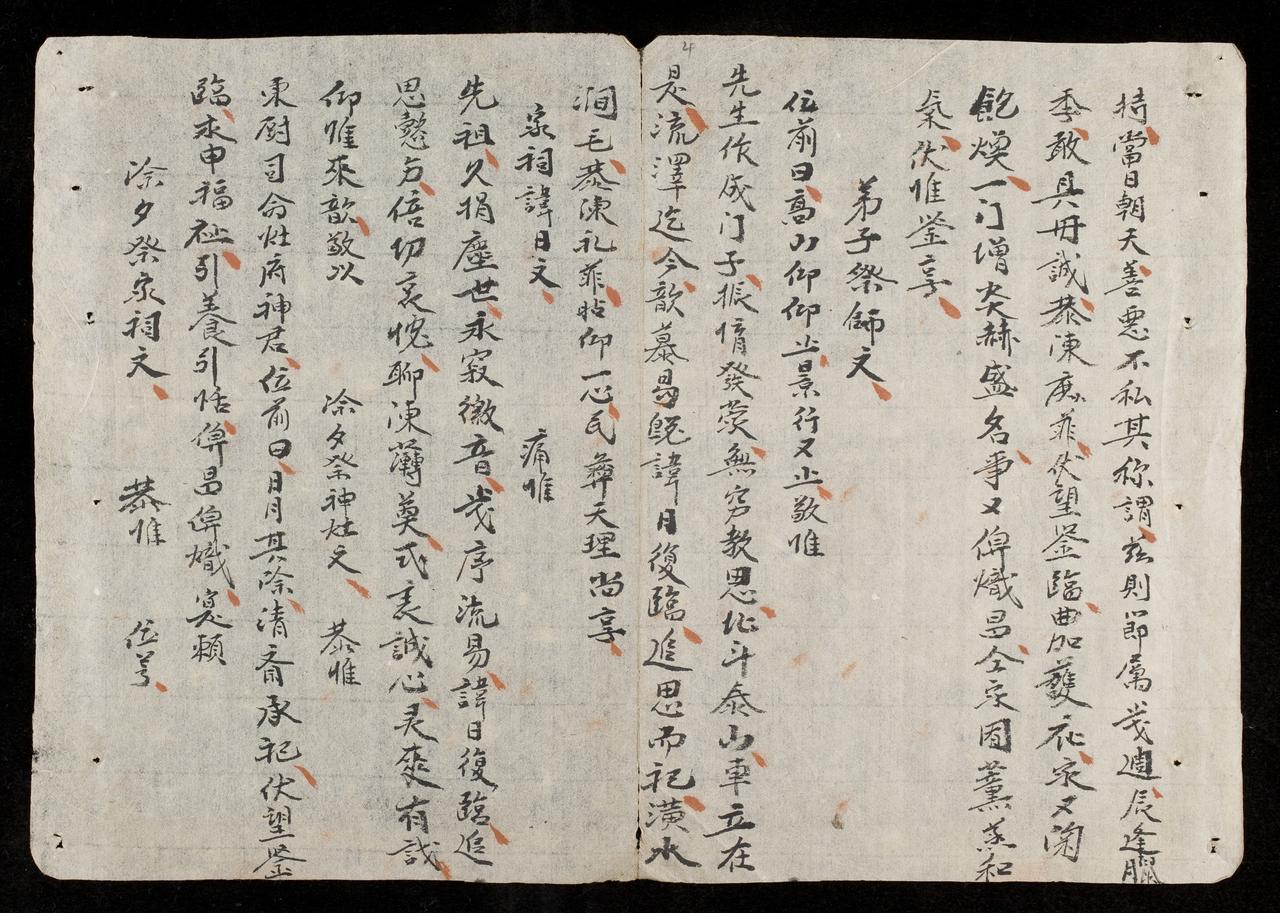 持當日朝天善悪不私其称謂兹則節属歲週辰逢臘
季敢具丹誠恭陳庶菲伏望鉴臨曲加護在家又陶
飽煖一门增奕赫盛名事又俾熾昌仝家固薰蒸和
氣伏惟鉴享
弟子祭師文
位前曰高山仰仰止景行又止敬惟
4
先生作成门子振惰發荣無穷教思北斗泰山車立在
是流澤迄今歆慕曷既諱日復臨追思而祀潢水
涧毛恭陳礼菲帖仰一心民彝天理尚享
家祠諱日文 痛惟
先祖久捐塵世永寂徽音歲序流易諱日復臨追
思懿方倍切哀愧聊陳薄奠式表誠心灵爽有誠
仰惟來歆敬以 除夕祭神灶文 恭惟
東厨司命灶府神君位前曰日月其除清斋承祀伏望鉴
臨永申福祉引養引恬俾昌俾熾寔賴
除夕祭家祠文 恭惟 位号